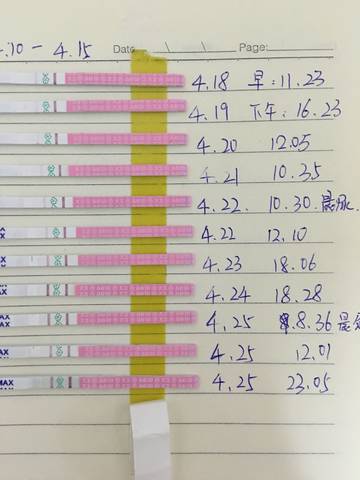 .10 - 4.15
Date Page:
4.18 早:11.23
4.19 下午:16.23
4.20 12.05
4.21 10.35
4.22. 10.30.晨尿.
4.22 12.10
4.23 18.06
4.24 18.28
4.25 8.36 晨
4.25 12.01
MAX 4.25 23.05